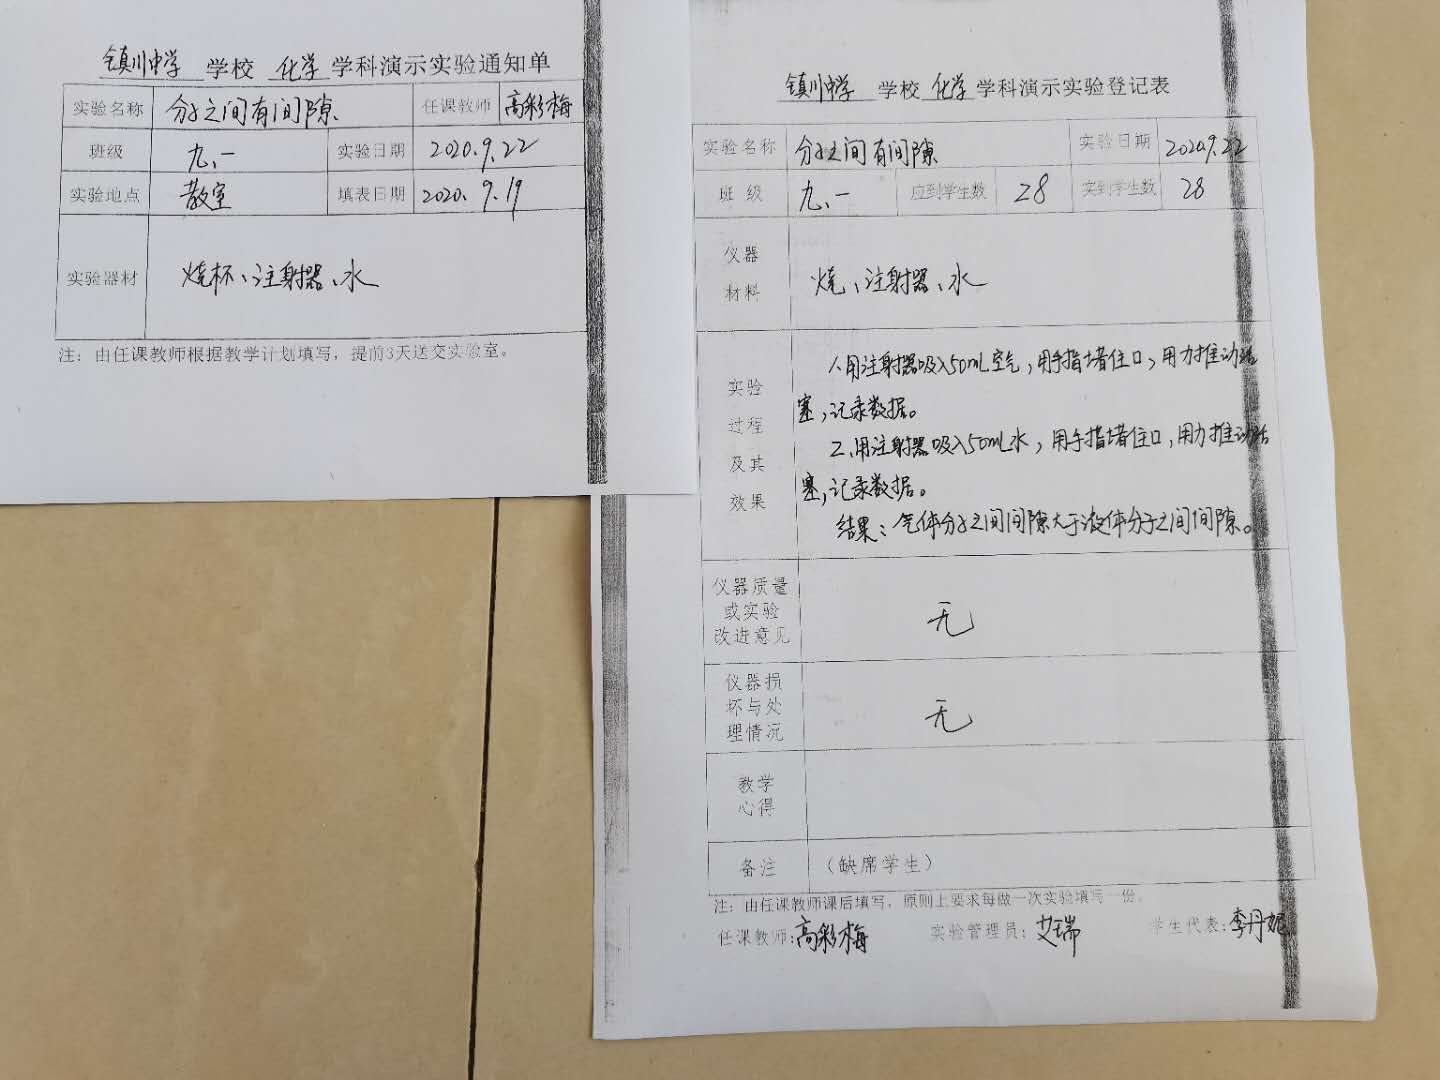 镇川中学 学校 化学 学科演示实验通知单
实验名称 分子之间有间隙 任课教师 高彩梅
班级 九、一 实验日期 2020.9.22
实验地点 教室 填表日期 2020.9.19
实验器材 烧杯、注射器、水
注：由任课教师根据教学计划填写，提前3天送交实验室。
镇川中学 学校 化学 学科演示实验登记表
实验名称 分子之间有间隙 实验日期 2020.9.22
班 级 九、一 应到学生数 28 实到学生数 28
仪器
材料
烧、注射器、水
实验
过程
及其
效果
1、用注射器吸入50mL空气，用手指堵住口，用力推动活
塞，记录数据。
2、用注射器吸入50mL水，用手指堵住口，用力推动活
塞，记录数据。
结果：气体分子之间间隙大于液体分子之间间隙。
仪器质量
或实验
改进意见
无
仪器损
坏与处
理情况
无
教学
心得
备注 （缺席学生）
注：由任课教师课后填写，原则上要求每做一次实验填写一份。
任课教师：高彩梅 实验管理员：艾瑞 学生代表：李丹妮